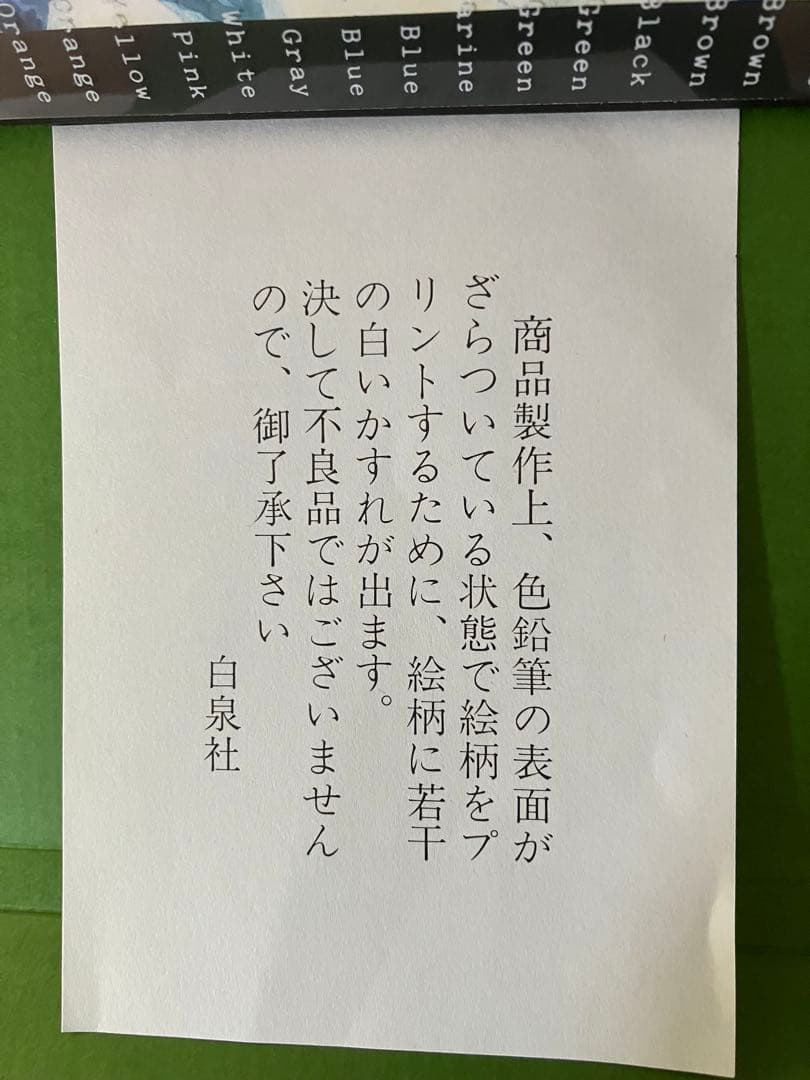 Orange
llow
Pink
White
Gray
Blue
Blue
arine
Green
Green
Black
Brown
Brown
商品製作上、色鉛筆の表面が
ざらついている状態で絵柄をプ
リントするために、絵柄に若干
の白いかすれが出ます。
決して不良品ではございません
ので、御了承下さい
白泉社